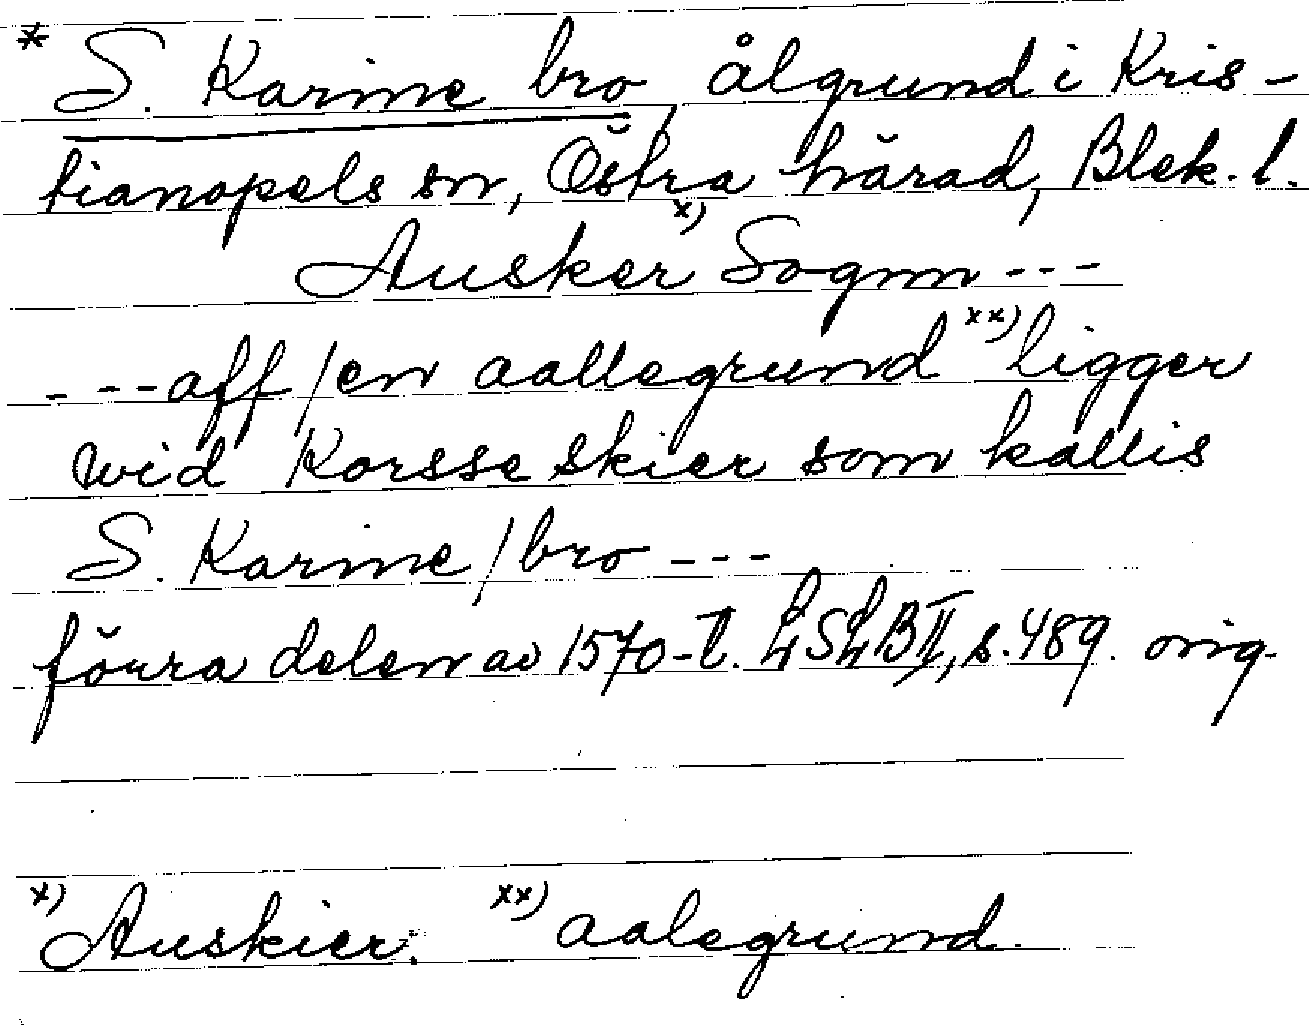 * S. Karine bro, ålgrund i Kris-
tianopels sn, Östra härad, Blek. l.
Ausker x) Sognn ---
---aff/en aallegrund xx) ligger
wid Korsse skier som kallis
S. Karine/bro ---
förra delen av 1570-t. LSLB II, s. 489. orig.
x) Auskier. xx) aalegrund.